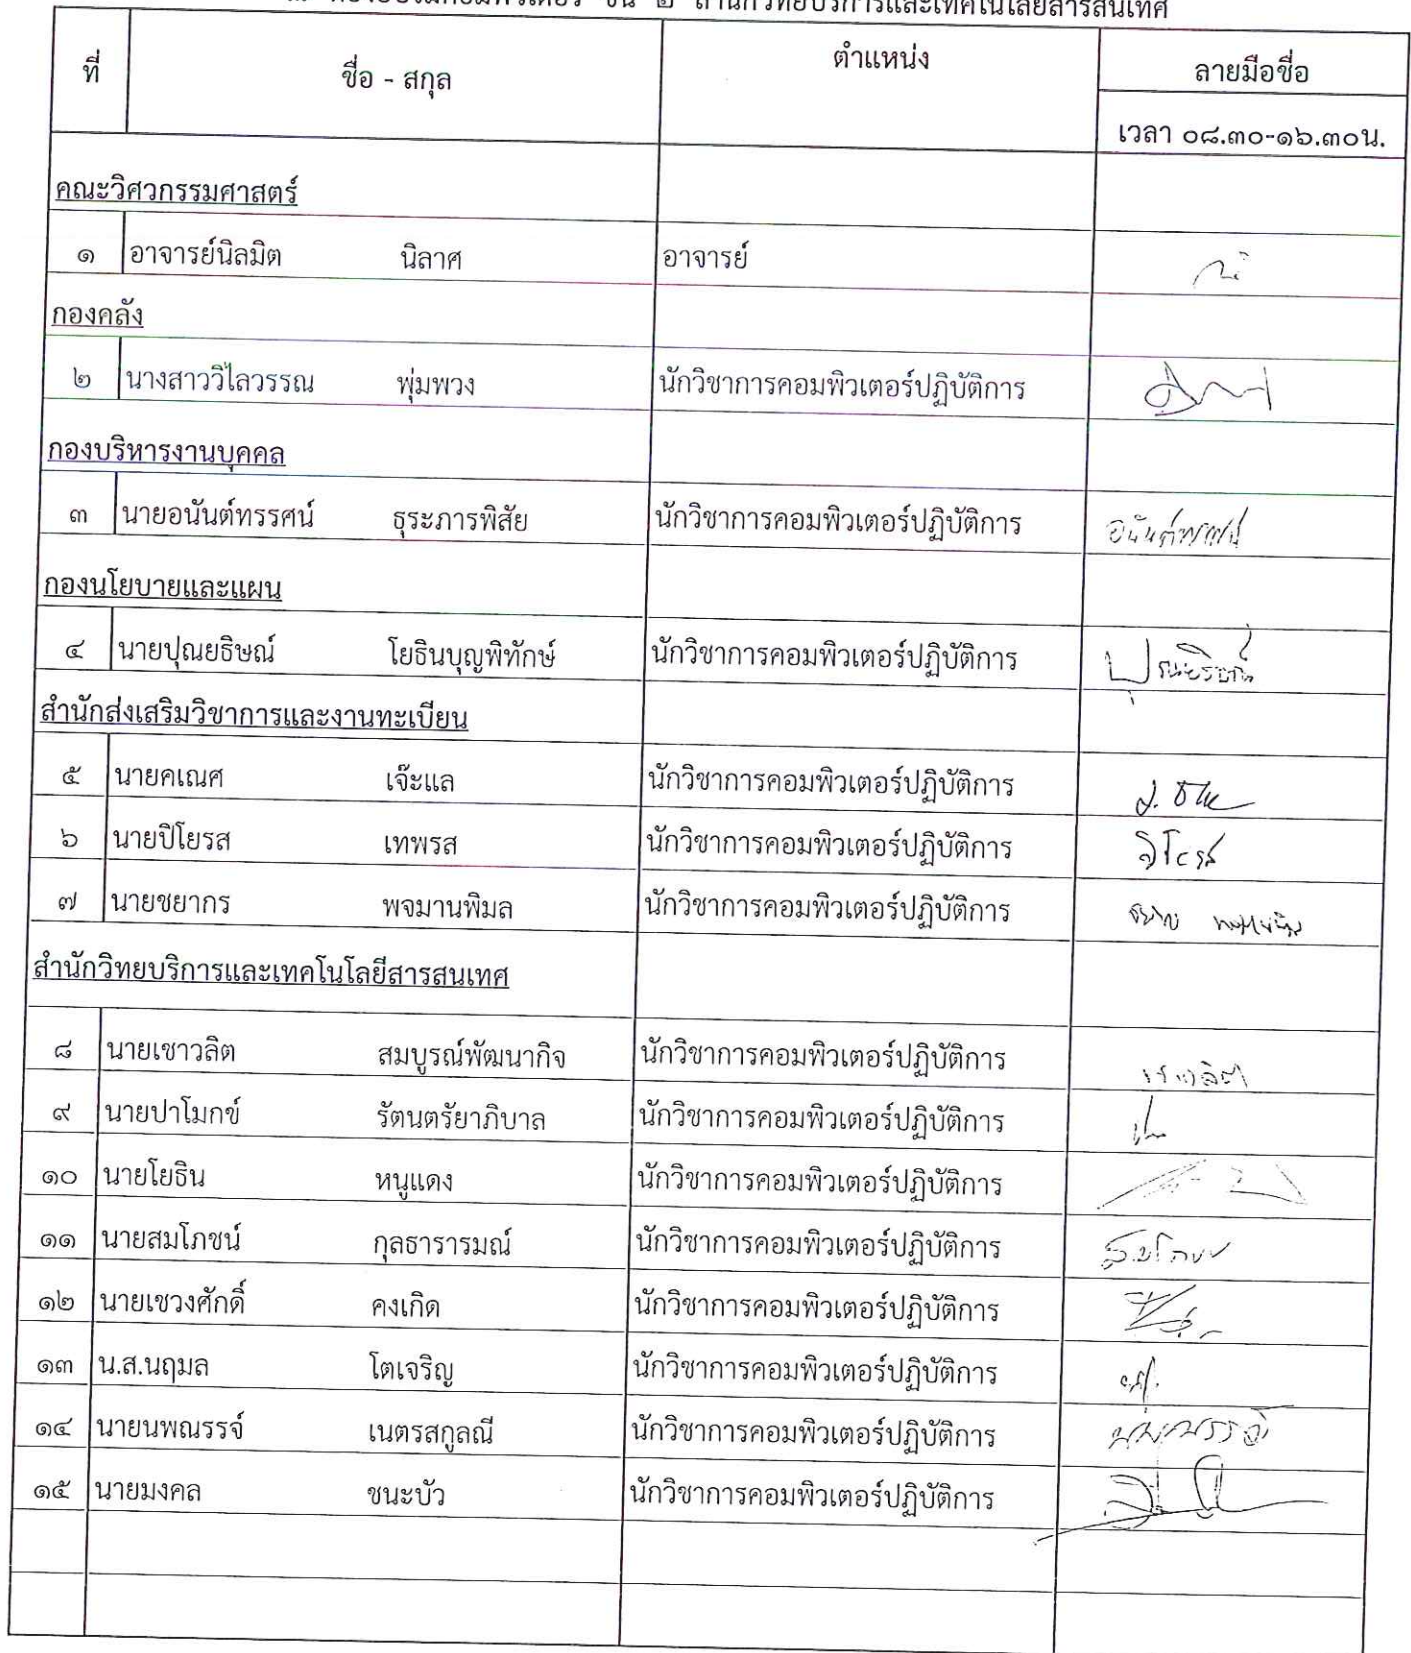 ชั้น ๒ สำนักวิทยบริการและเทคโนโลยีสารสนเทศ
ที่ ชื่อ - สกุล ตำแหน่ง ลายมือชื่อ
เวลา ๐๘.๓๐-๑๖.๓๐น.
คณะวิศวกรรมศาสตร์
๑ อาจารย์นิลมิต นิลาศ อาจารย์
กองคลัง
๒ นางสาววิไลวรรณ พุ่มพวง นักวิชาการคอมพิวเตอร์ปฏิบัติการ
กองบริหารงานบุคคล
๓ นายอนันต์ทรรศน์ ธุระภารพิสัย นักวิชาการคอมพิวเตอร์ปฏิบัติการ อนันต์ทรรศน์
กองนโยบายและแผน
๔ นายปุณยธิษณ์ โยธินบุญพิทักษ์ นักวิชาการคอมพิวเตอร์ปฏิบัติการ ปุณยธิษณ์
สำนักส่งเสริมวิชาการและงานทะเบียน
๕ นายคเณศ เจ๊ะแล นักวิชาการคอมพิวเตอร์ปฏิบัติการ
๖ นายปิโยรส เทพรส นักวิชาการคอมพิวเตอร์ปฏิบัติการ ปิโยรส
๗ นายชยากร พจมานพิมล นักวิชาการคอมพิวเตอร์ปฏิบัติการ
สำนักวิทยบริการและเทคโนโลยีสารสนเทศ
๘ นายเชาวลิต สมบูรณ์พัฒนากิจ นักวิชาการคอมพิวเตอร์ปฏิบัติการ เชาวลิต
๙ นายปาโมกข์ รัตนตรัยาภิบาล นักวิชาการคอมพิวเตอร์ปฏิบัติการ
๑๐ นายโยธิน หนูแดง นักวิชาการคอมพิวเตอร์ปฏิบัติการ
๑๑ นายสมโภชน์ กุลธารารมณ์ นักวิชาการคอมพิวเตอร์ปฏิบัติการ สมโภชน์
๑๒ นายเชวงศักดิ์ คงเกิด นักวิชาการคอมพิวเตอร์ปฏิบัติการ
๑๓ น.ส.นฤมล โตเจริญ นักวิชาการคอมพิวเตอร์ปฏิบัติการ
๑๔ นายนพณรรจ์ เนตรสกูลณี นักวิชาการคอมพิวเตอร์ปฏิบัติการ นพณรรจ์
๑๕ นายมงคล ชนะบัว นักวิชาการคอมพิวเตอร์ปฏิบัติการ